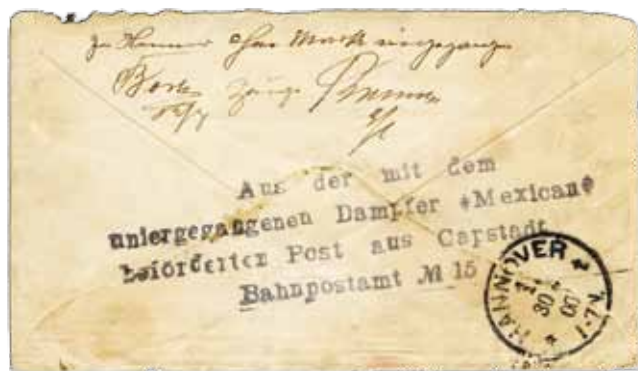 Hannover ohne Marke eingegangen
Aus der mit dem
untergegangenen Dampfer *Mexican*
beförderten Post aus Capstadt
Bahnpostamt № 15
HANNOVER